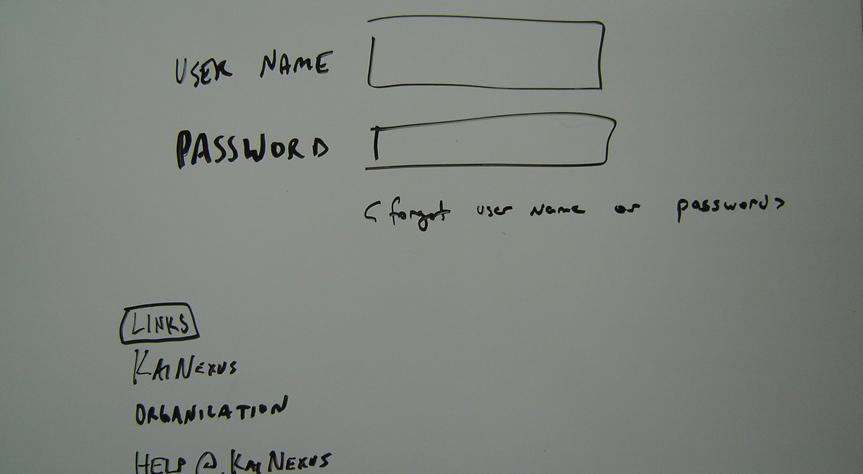 USER NAME
PASSWORD
<forgot user name or password>
LINKS
KAINEXUS
ORGANIZATION
HELP @ KAINEXUS